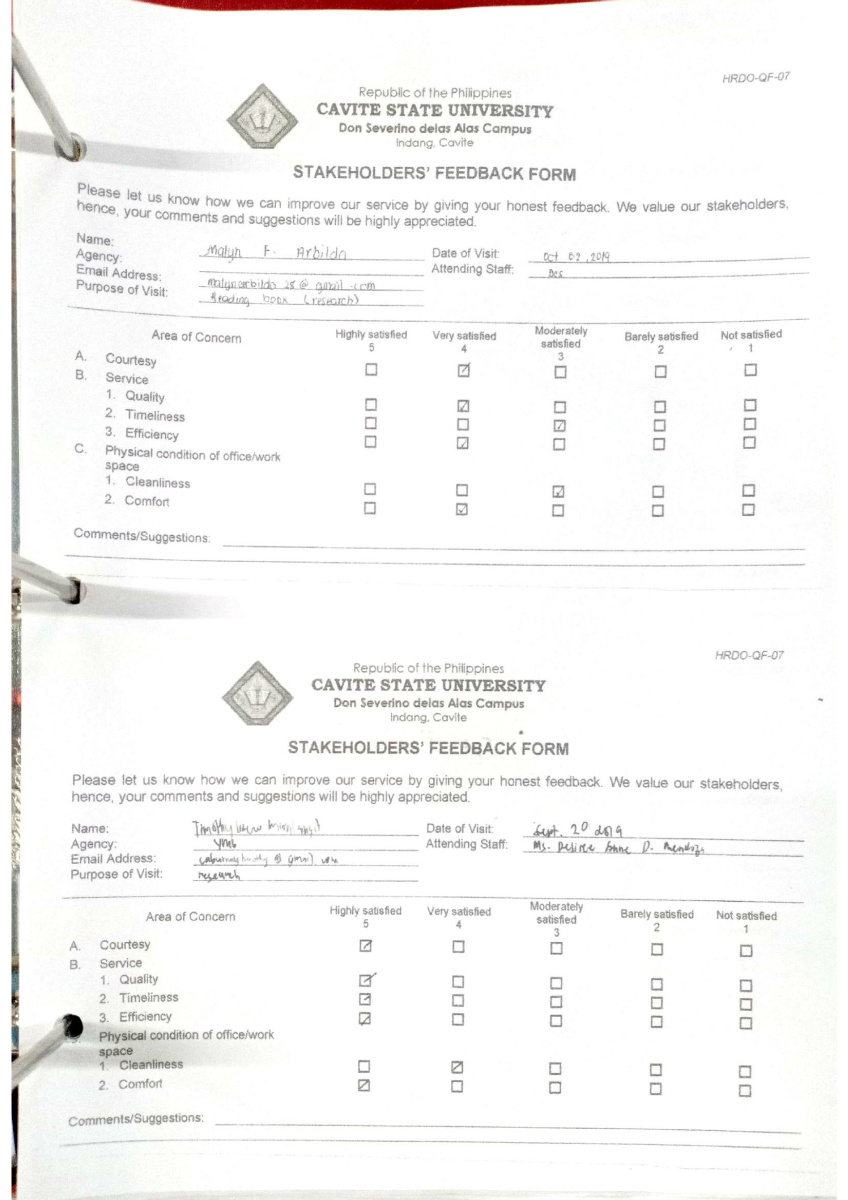 HRDO-QF-07
Republic of the Philippines
CAVITE STATE UNIVERSITY
Don Severino delas Alas Campus
Indang, Cavite
STAKEHOLDERS' FEEDBACK FORM
Please let us know how we can improve our service by giving your honest feedback. We value our stakeholders,
hence, your comments and suggestions will be highly appreciated.
Name: Malyn F. Arbildo Date of Visit: Oct 02, 2019
Agency: Attending Staff: Des
Email Address: malynarbildo 28@gmail.com
Purpose of Visit: Reading book (research)
Area of Concern Highly satisfied 5 Very satisfied 4 Moderately satisfied 3 Barely satisfied 2 Not satisfied 1
A. Courtesy
B. Service
1. Quality
2. Timeliness
3. Efficiency
C. Physical condition of office/work
space
1. Cleanliness
2. Comfort
Comments/Suggestions:
HRDO-QF-07
Republic of the Philippines
CAVITE STATE UNIVERSITY
Don Severino delas Alas Campus
Indang, Cavite
STAKEHOLDERS' FEEDBACK FORM
Please let us know how we can improve our service by giving your honest feedback. We value our stakeholders,
hence, your comments and suggestions will be highly appreciated.
Name: Timothy Date of Visit: Sept. 20 2019
Agency: Attending Staff: Ms. Desiree Anne D. Mendoza
Email Address:
Purpose of Visit: research
Area of Concern Highly satisfied 5 Very satisfied 4 Moderately satisfied 3 Barely satisfied 2 Not satisfied 1
A. Courtesy
B. Service
1. Quality
2. Timeliness
3. Efficiency
Physical condition of office/work
space
1. Cleanliness
2. Comfort
Comments/Suggestions: